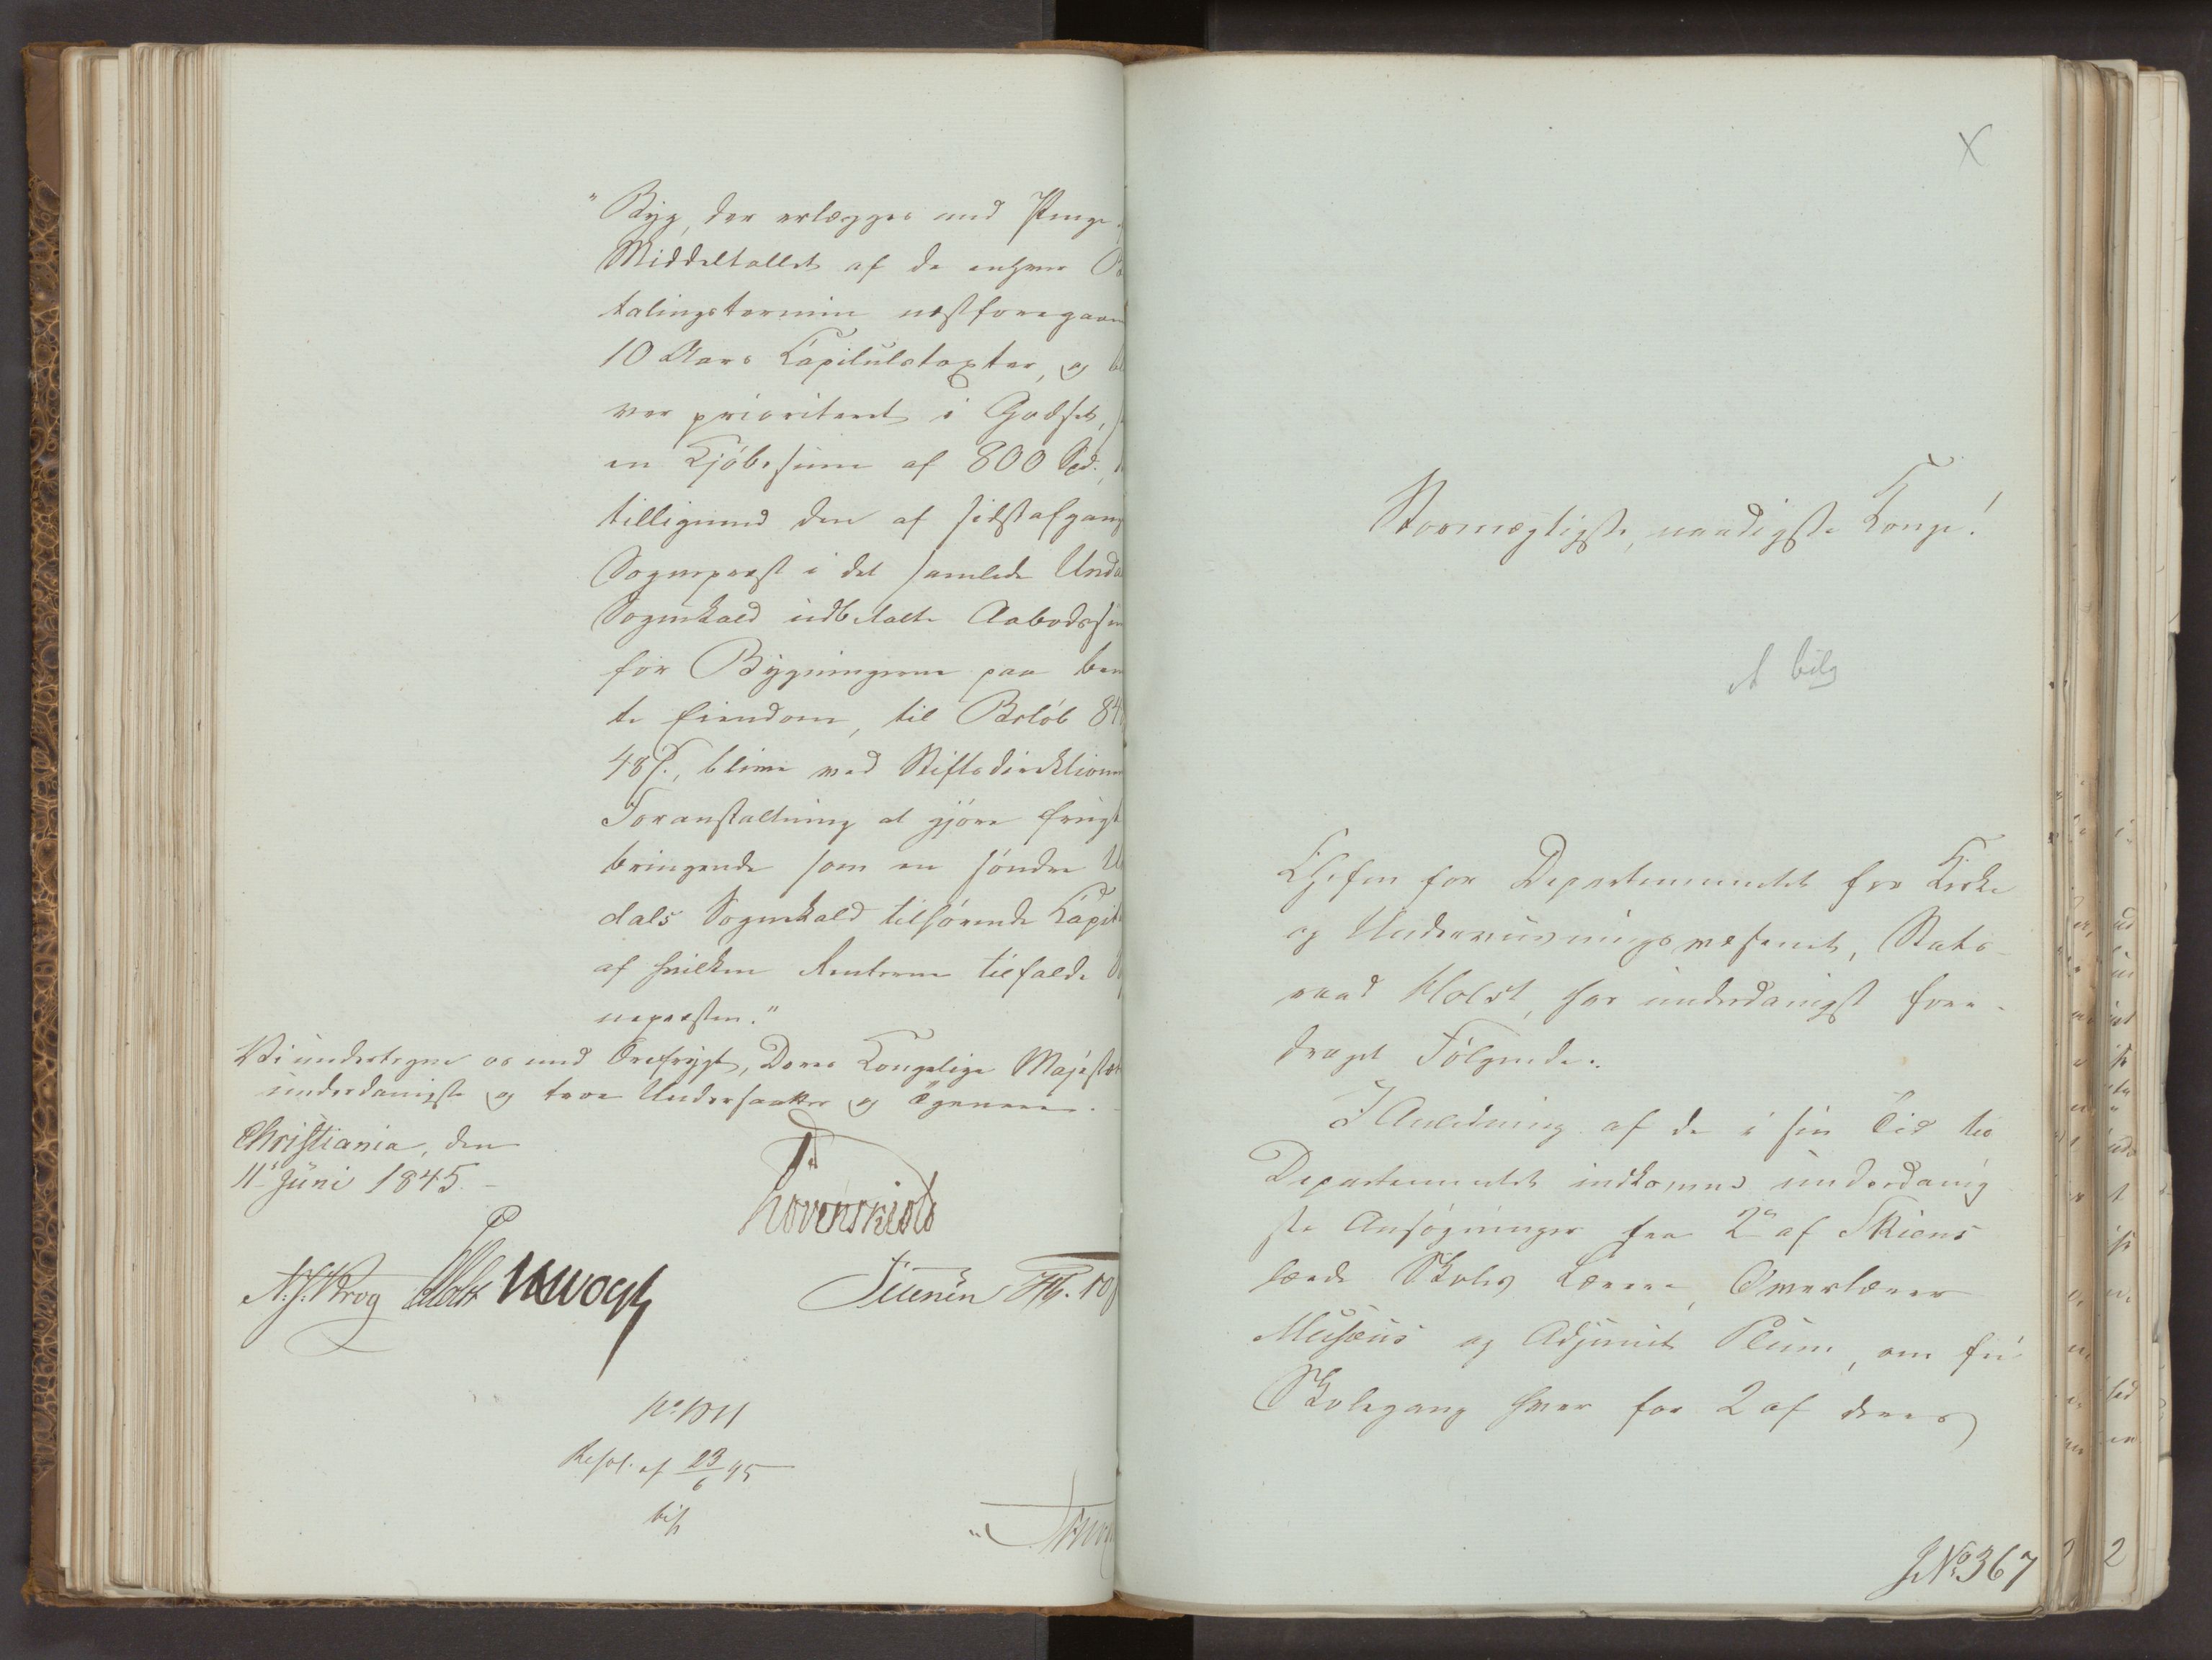 "Byg, der erlægges med Penge
Middeltallet af de enhver Be
talingstermin næstforegaaen
10 Aars Capitulstaxter, og bl
ver prioriteret i Godset,
en Kjöbesum af 800 Spd.,
tilligemed den af sidstafgang
Sognepræst i det samlede Unda
Sognekald udbetalte Aabodssum
for Bygningerne paa ben
te Eiendom, til Belöb 84
48 s., blive ved Stiftsdirektionen
Foranstaltning at gjöre frugt
bringende som en söndre U
dals Sognekald tilhörende Capit
af hvilken Renterne tilfalde
nepræsten."
Vi undertegne os med Ærefrygt, Deres Kongelige Majestæt
underdanigste og troe Undersaatter og Tjenere.
Christiania, den
11te Juni 1845.
Løvenskiold
N. J. Krog Holst Vogt
No 1011
Resol. af 23/6 45
bif
X
Stormægtigste, naadigste Konge!
bilg
Chefen for Departementet for Kirke
og Underviisningsvæsenet, Stats-
raad Holst, har underdanigst fore-
draget Fölgende:
I Anledning af de i sin Tid til
Departementet indkomne underdanig
ste Ansögninger fra 2de af Skiens
lærde Skoles Lærere, Overlærer
Musæus og Adjunct Blum, om fri
Skolegang hver for 2 af deres
J No 367
2